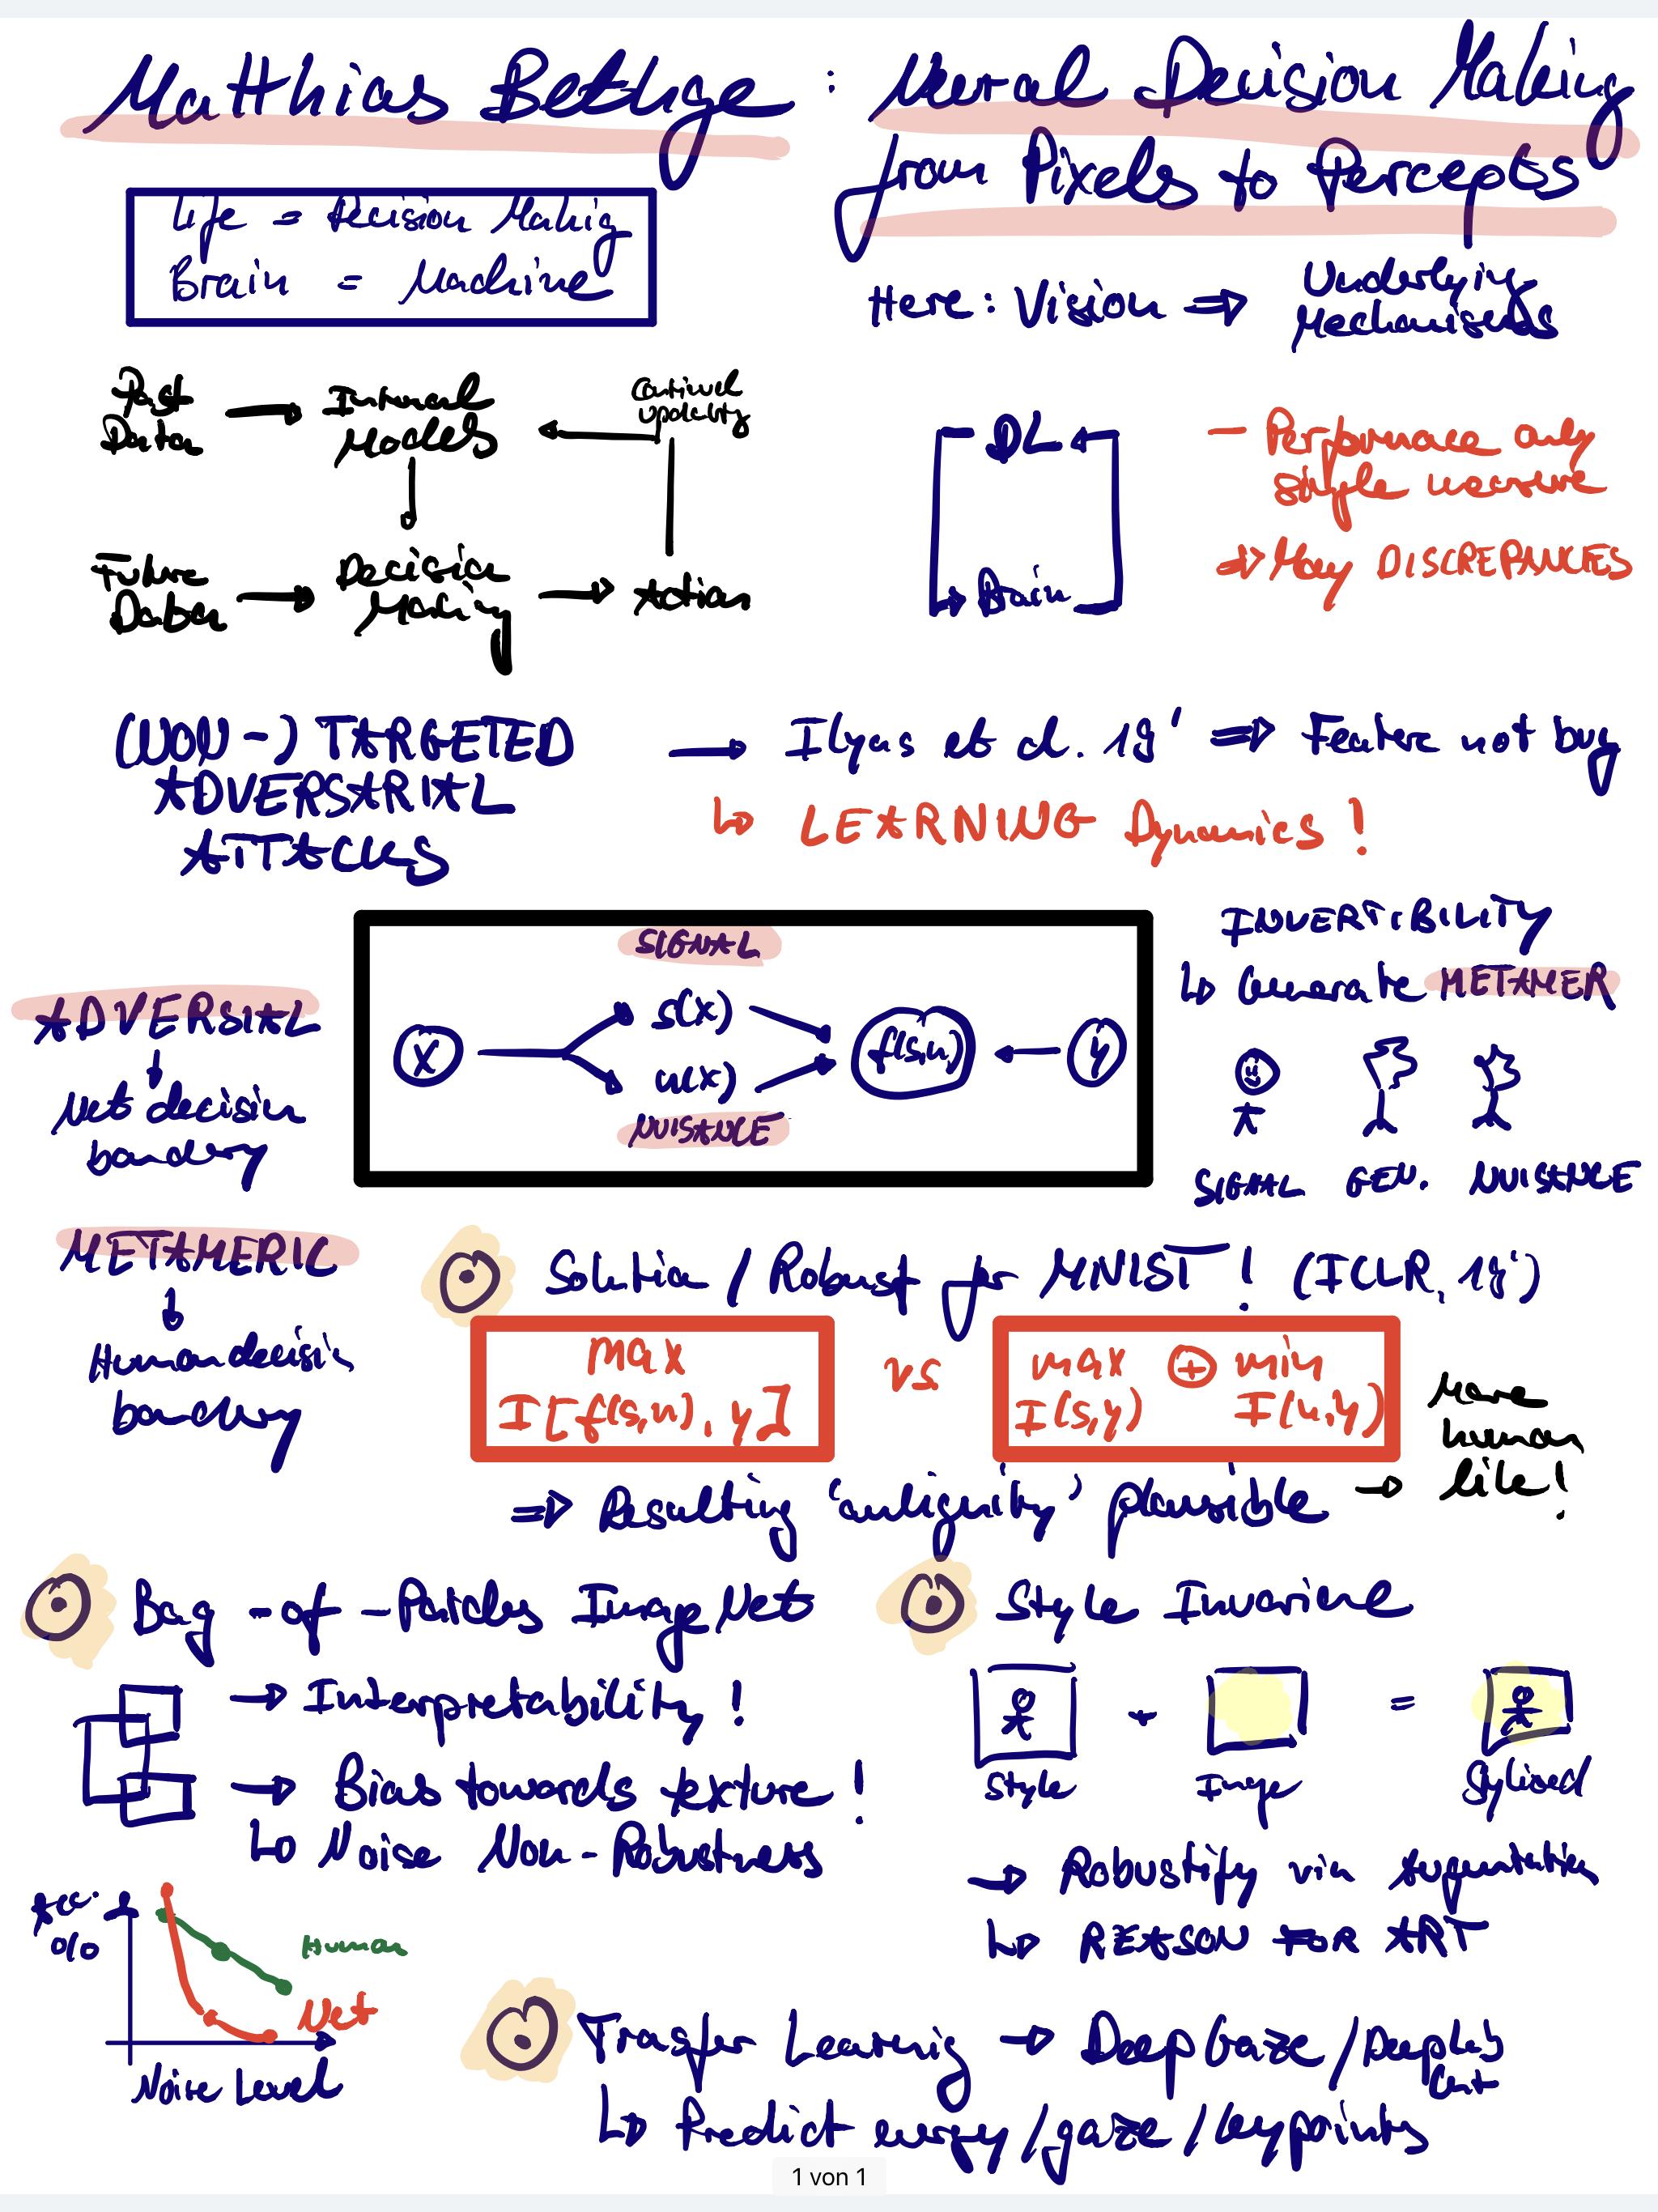 Matthias Bethge : Neural Decision Making
from Pixels to Percepts
Life = Decision Making
Brain = Machine
Here: Vision ⇒ Underlying
Mechanisms
Past
Data → Internal
Models
Continual
updating
Future
Data → Decision
Making → Action
DL
Brain
- Performance only
single measure
⇒ Many DISCREPANCIES
(NON-) TARGETED
ADVERSARIAL
ATTACKS
→ Ilyas et al. 19' ⇒ Feature not bug
↳ LEARNING Dynamics!
ADVERSIAL
↓
Net decision
boundary
SIGNAL
x
s(x)
n(x)
f(s,n) ← y
NUISANCE
INVERTIBILITY
↳ Generate METAMER
SIGNAL GEN. NUISANCE
METAMERIC
↓
Human decision
boundary
Solution / Robust for MNIST! (ICLR, 19')
max
I[f(s,n), y]
vs
max ⊕ min
I(s,y) I(n,y)
More
human
like!
⇒ Resulting 'ambiguity' plausible →
Bag-of-Patches ImageNet
→ Interpretability!
→ Bias towards texture!
↳ Noise Non-Robustness
Acc.
%
Human
Net
Noise Level
Style Invariance
+ =
Style Image Stylized
→ Robustify via Augmentation
↳ REASON FOR ART
Transfer Learning → DeepGaze / DeepLab
Cut
↳ Predict energy / gaze / keypoints
1 von 1